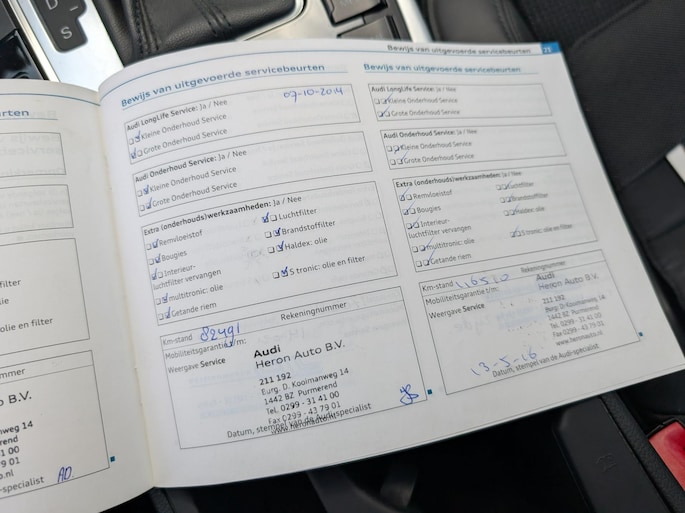 D
S
urten
filter
lie
olie en filter
mmer
o B.V.
nweg 14
erend
1 00
79 01
o.nl
-specialist
AD
Bewijs van uitgevoerde servicebeurten
Audi LongLife Service: Ja / Nee
07-10-2014
Kleine Onderhoud Service
Grote Onderhoud Service
Audi Onderhoud Service: Ja / Nee
Kleine Onderhoud Service
Grote Onderhoud Service
Extra (onderhouds)werkzaamheden: Ja / Nee
Remvloeistof
Luchtfilter
Bougies
Brandstoffilter
Interieur-
luchtfilter vervangen
Haldex: olie
multitronic: olie
S tronic: olie en filter
Getande riem
Rekeningnummer
Km-stand 82491
Mobiliteitsgarantie t/m:
Weergave Service
Audi
Heron Auto B.V.
211 192
Burg. D. Kooimanweg 14
1442 BZ Purmerend
Tel. 0299 - 31 41 00
Fax 0299 - 43 79 01
www.heronauto.nl
Datum, stempel van de Audi-specialist
Bewijs van uitgevoerde servicebeurten
Bewijs van uitgevoerde servicebeurten
Audi LongLife Service: Ja / Nee
Kleine Onderhoud Service
Grote Onderhoud Service
Audi Onderhoud Service: Ja / Nee
Kleine Onderhoud Service
Grote Onderhoud Service
Extra (onderhouds)werkzaamheden: Ja / Nee
Remvloeistof
Luchtfilter
Bougies
Brandstoffilter
Interieur-
luchtfilter vervangen
Haldex: olie
multitronic: olie
S tronic: olie en filter
Getande riem
Rekeningnummer
Km-stand
Mobiliteitsgarantie t/m:
Weergave Service
Audi
Heron Auto B.V.
211 192
Burg. D. Kooimanweg 14
1442 BZ Purmerend
Tel. 0299 - 31 41 00
Fax 0299 - 43 79 01
www.heronauto.nl
13-5-16
Datum, stempel van de Audi-specialist